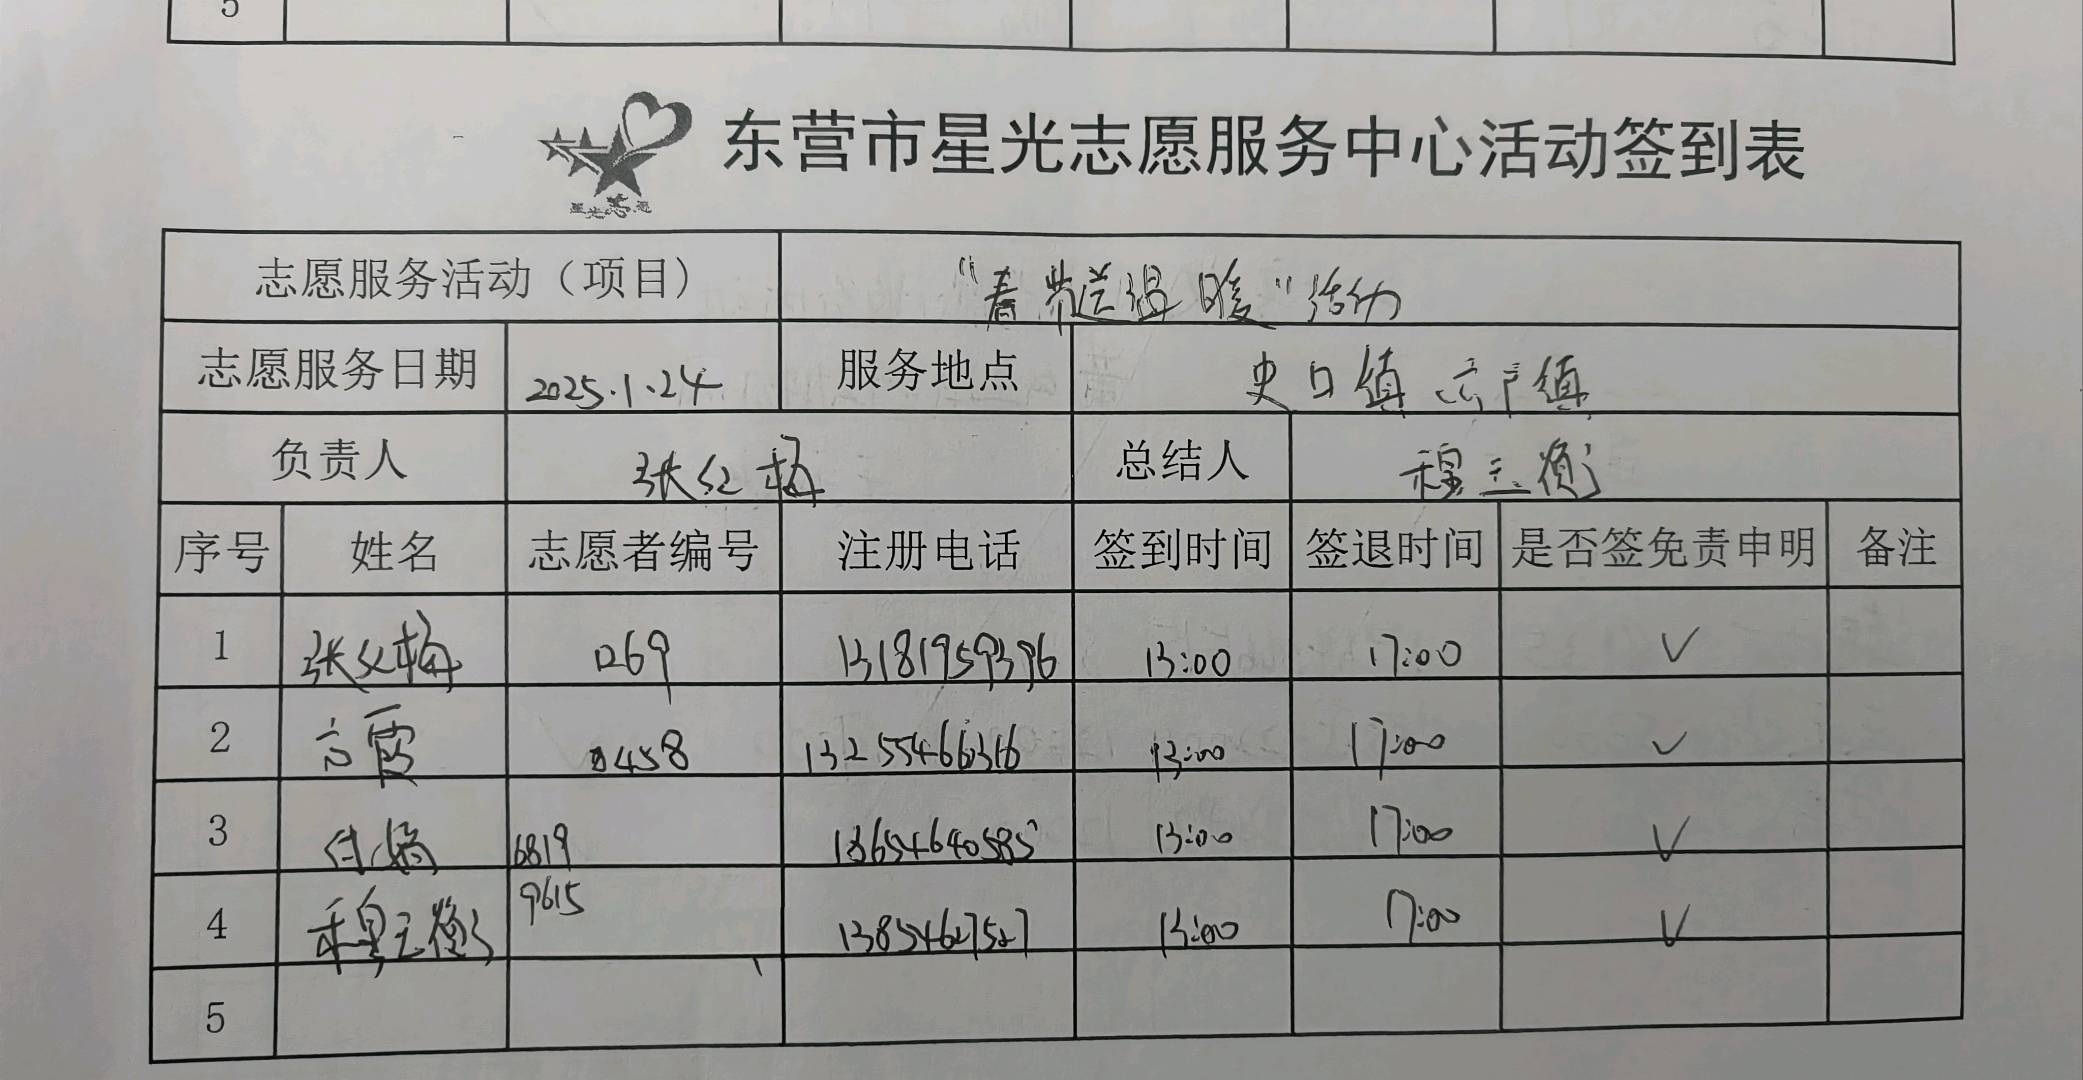 5
东营市星光志愿服务中心活动签到表
星光志愿
志愿服务活动（项目） “春节送温暖”活动
志愿服务日期 2025.1.24 服务地点 史口镇 六户镇
负责人 张红梅 总结人 穆玉衡
序号 姓名 志愿者编号 注册电话 签到时间 签退时间 是否签免责申明 备注
1 张红梅 0269 13181959396 13:00 17:00 ✓
2 高霞 0458 13255466316 13:00 17:00 ✓
3 付娟 6819 13654640585 13:00 17:00 ✓
4 穆玉衡 9615 13854627527 13:00 17:00 ✓
5